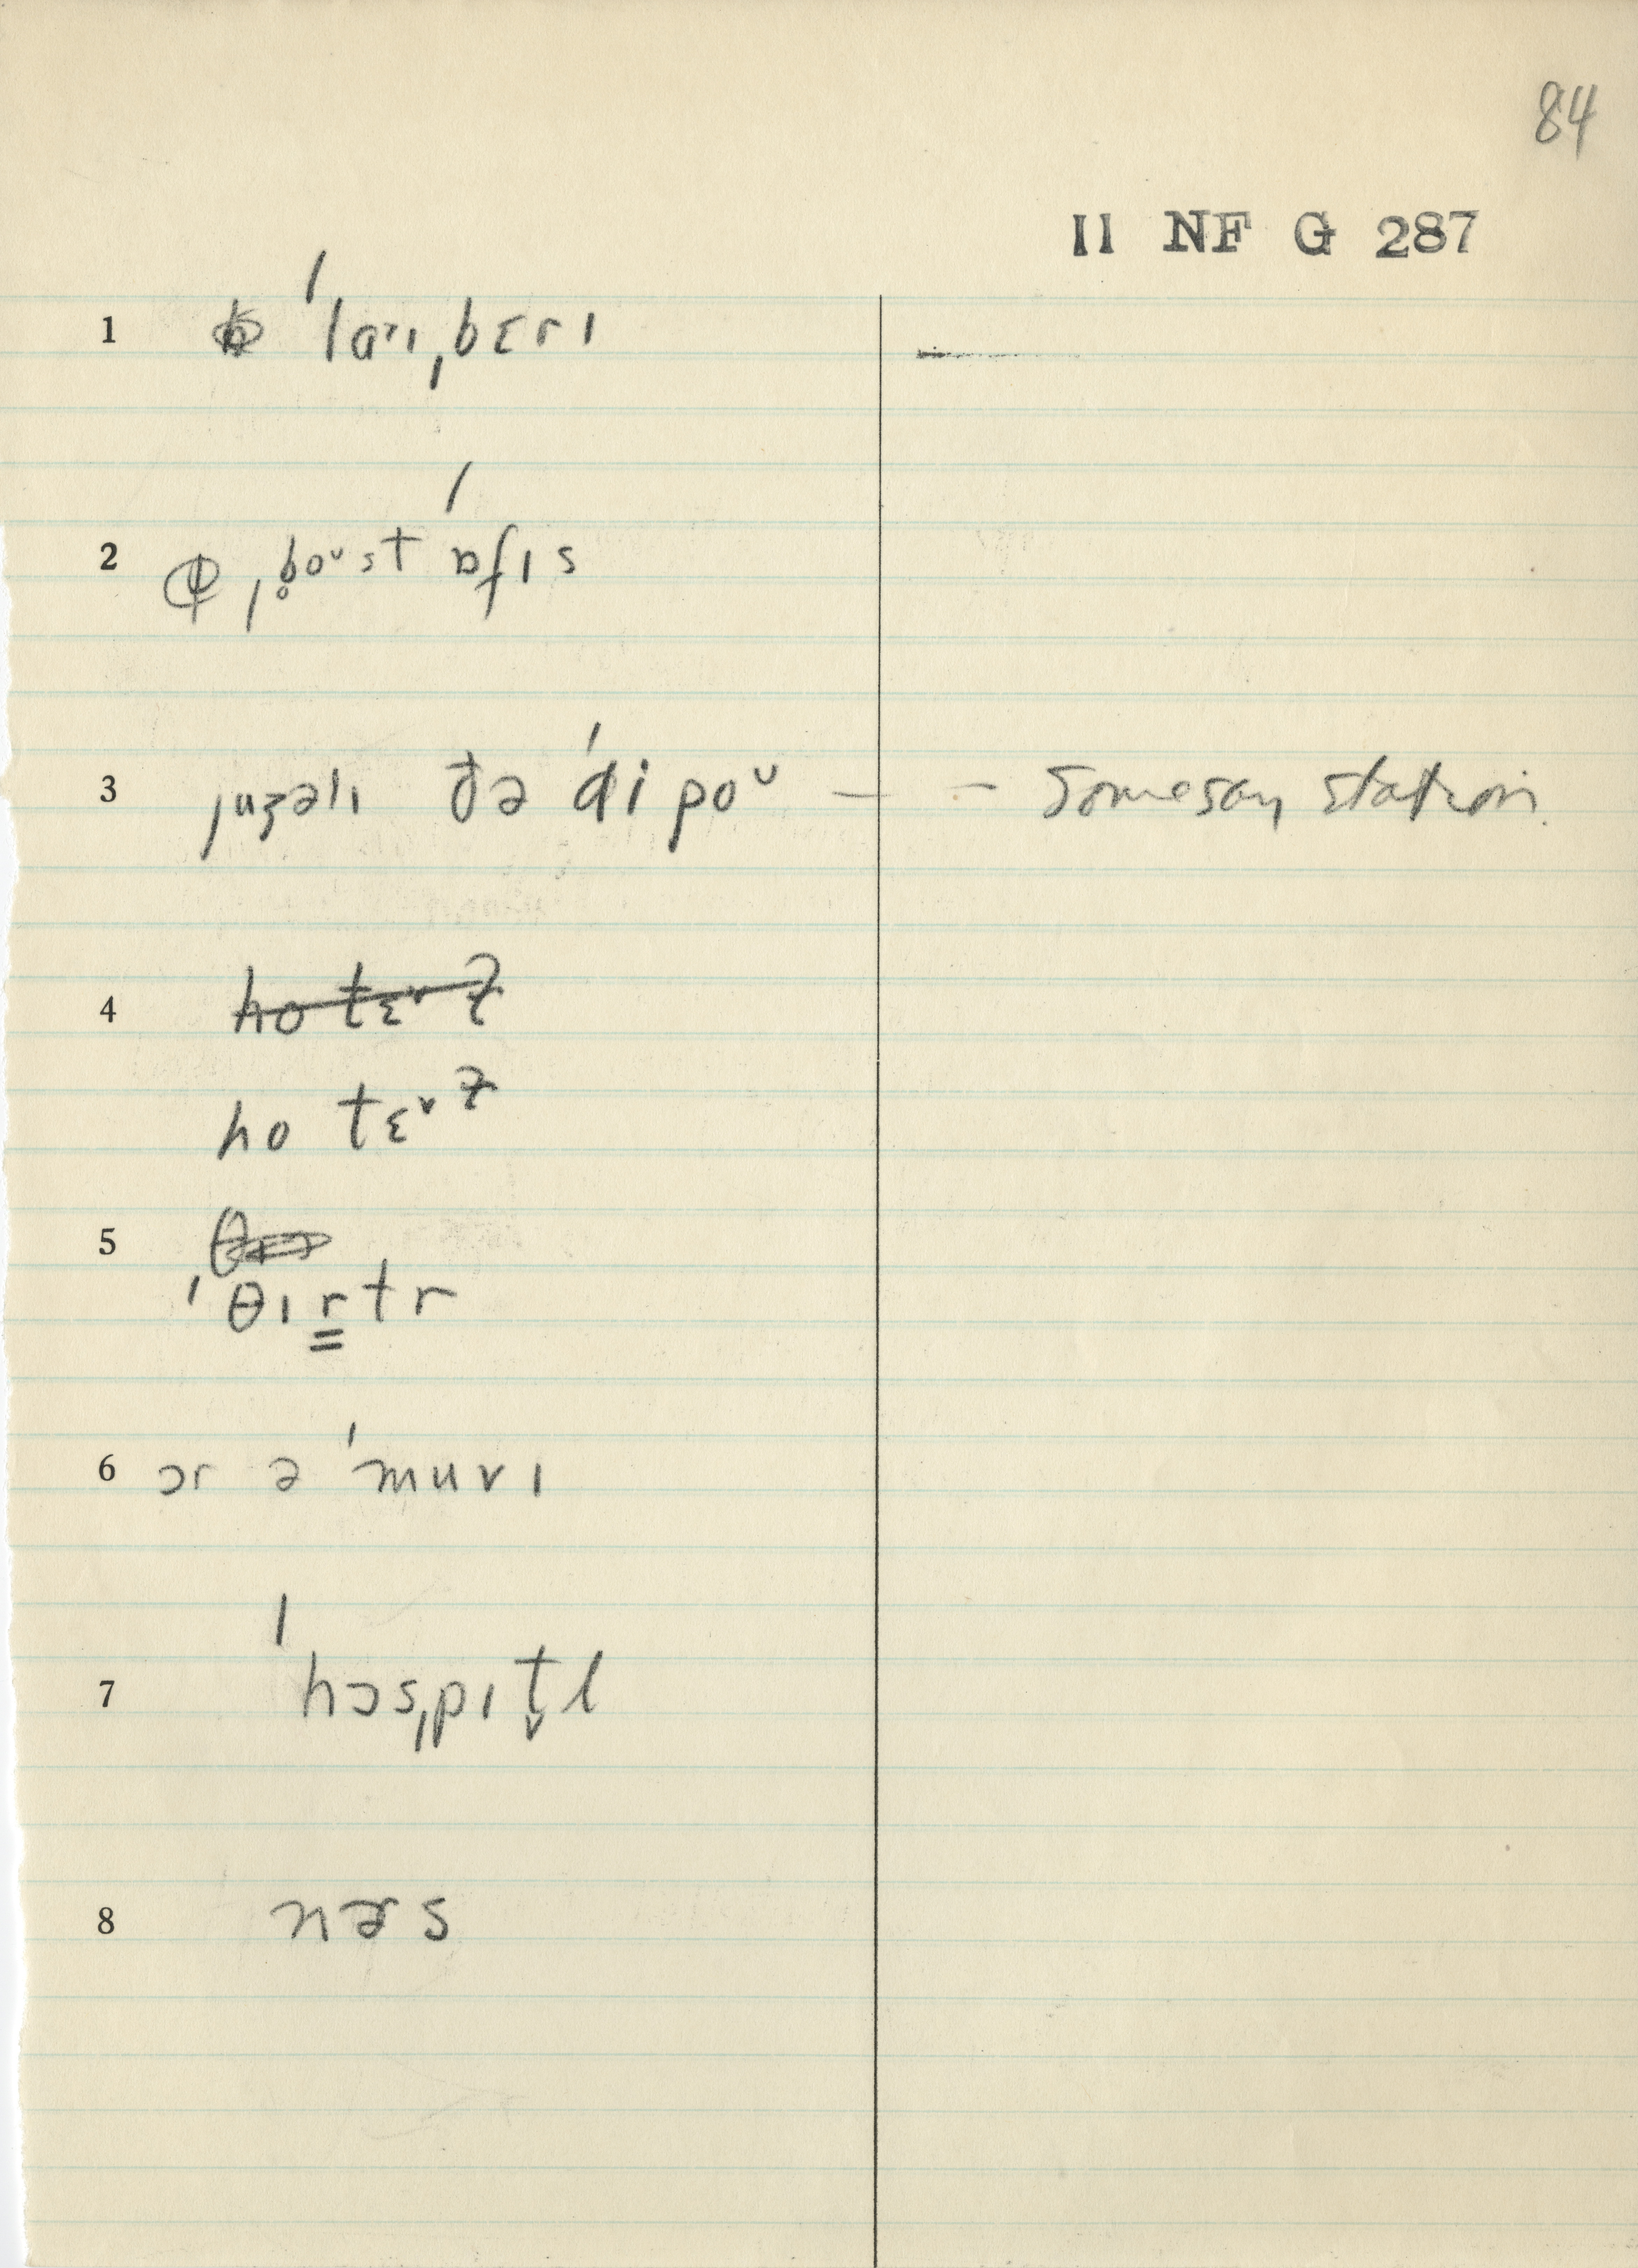 84
II NF G 287
1 ˈlaɪˌbɛrɪ
2 ˌb̥oᵘst ɒfɪs
3 juʒəlɪ ðə ˈdipoᵘ — – Some say station.
4 hotɛᵛɫ
hotɛᵛɫ
5
ˈθɪrtr
6 ɔr ə ˈmuvɪ
7 ˈhɔsˌpɪt̬l
8 nɚs